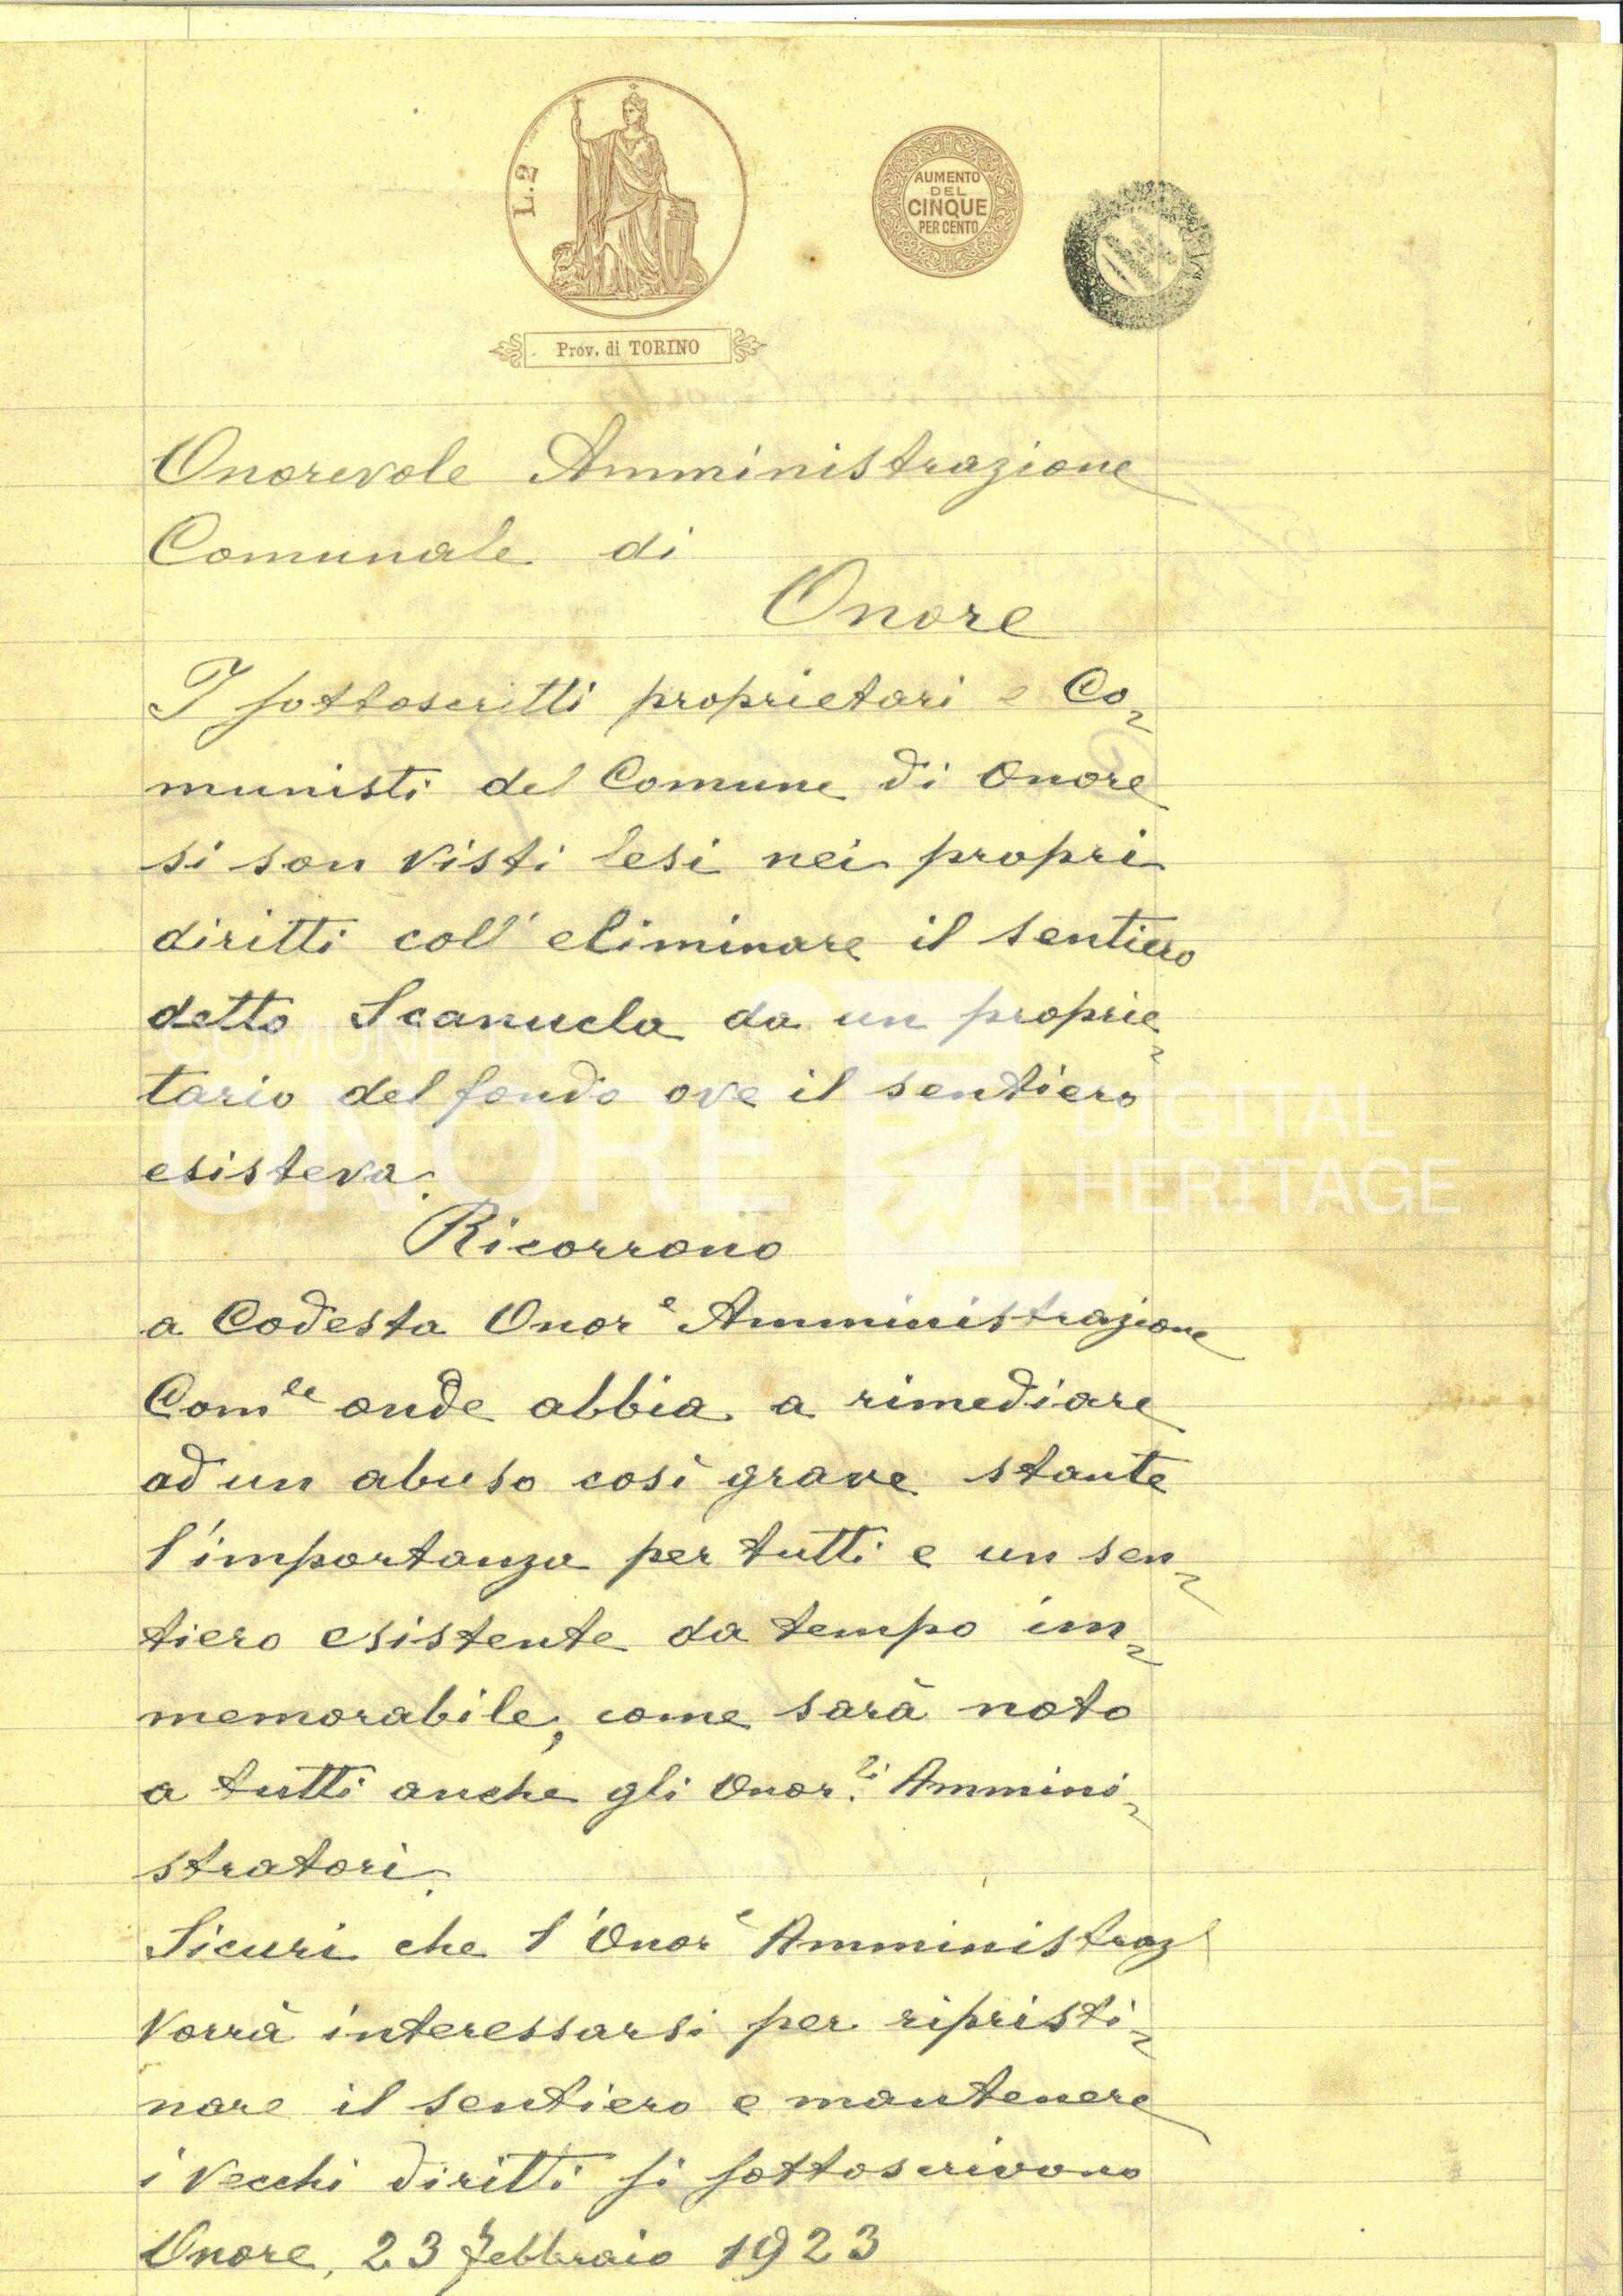 L. 2
Prov. di TORINO
AUMENTO
DEL
CINQUE
PER CENTO
Onorevole Amministrazione
Comunale di
Onore
I sottoscritti proprietari e Co=
munisti del Comune di Onore
si son visti lesi nei propri
diritti coll' eliminare il sentiero
detto Scanuela da un proprie=
tario del fondo ove il sentiero
esisteva.
Ricorrono
a Codesta Onor e Amministrazione
Com le onde abbia a rimediare
ad un abuso così grave stante
l'importanza per tutti e un sen=
tiero esistente da tempo im=
memorabile, come sarà noto
a tutti anche gli Onor. li Ammini=
stratori.
Sicuri che l'Onor e Amministraz
vorrà interessarsi per ripristi=
nare il sentiero e mantenere
i vecchi diritti si sottoscrivono
Onore, 23 febbraio 1923
COMUNE DI
ONORE
DIGITAL
HERITAGE